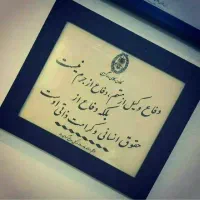 دفاع وکیل از متهم، دفاع از جرم نیست
بلکه دفاع از
حقوق انسانی و کرامت ذاتی اوست